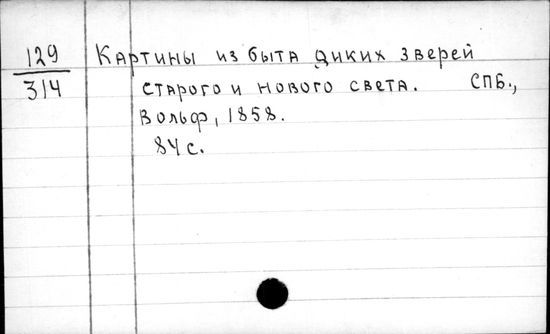 129
314
Картины из быта диких зверей
старого и нового света. СПБ.,
Вольф, 1858.
84 с.